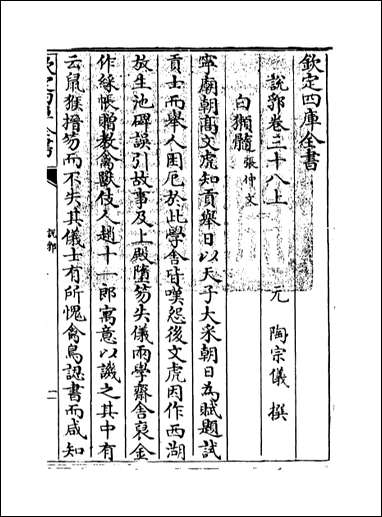 欽定四庫全書
說郛卷三十八上
元 陶宗儀 撰
白獺髓 張仲文
寧廟朝高文虎知貢舉日以天子大采朝日為賦題試
貢士而舉人困厄於此學舍皆嘆怨後文虎因作西湖
放生池碑誤引故事及上殿墮笏失儀兩學齋舍裒金
作綵帳贈教禽獸伎人趙十一郎寓意以譏之其中有
云鼠猴搢笏而不失其儀士有所愧禽鳥認書而咸知
欽定四庫全書
說郛